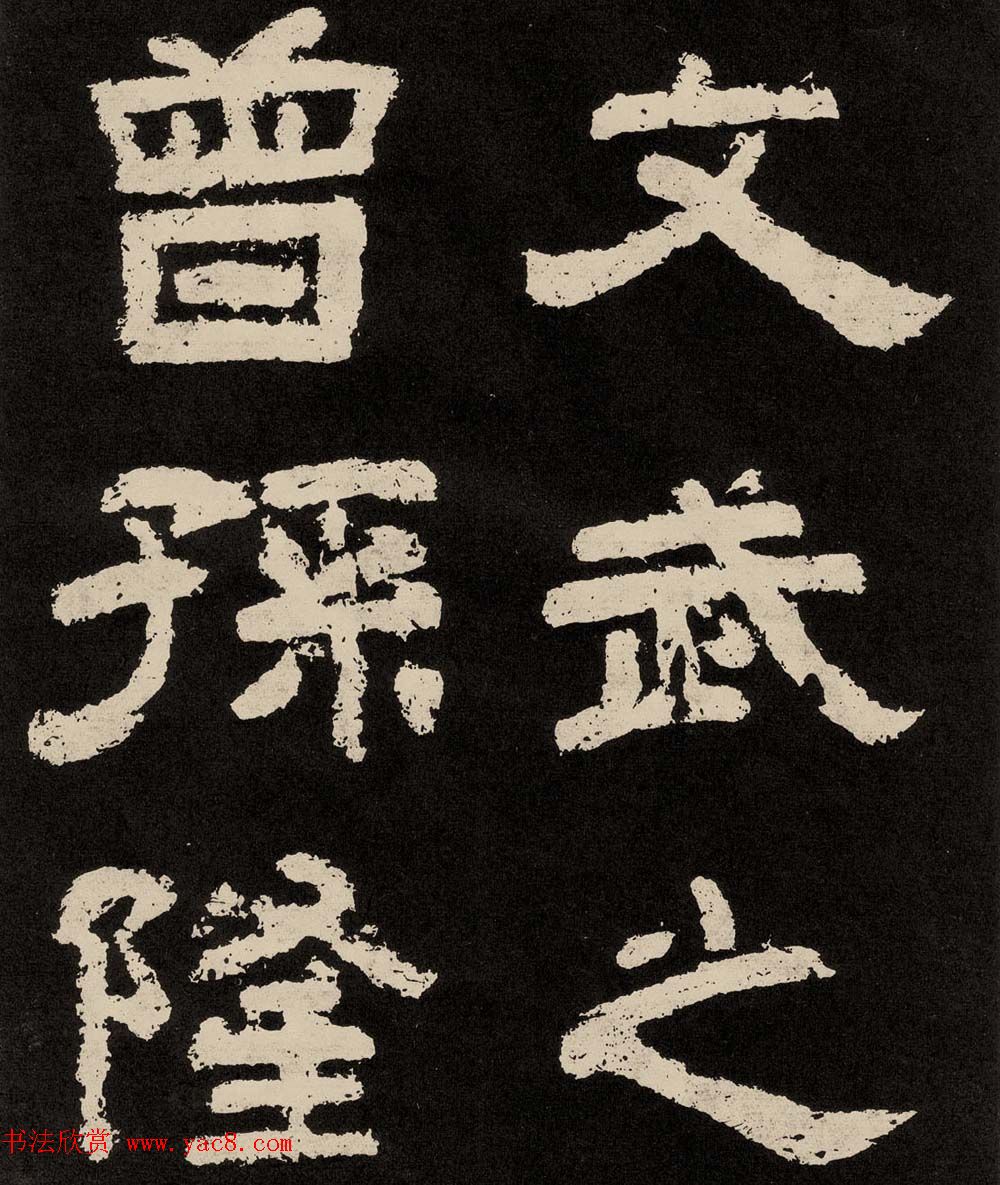 文武之
曾孫隆
书法欣赏 www.yac8.com